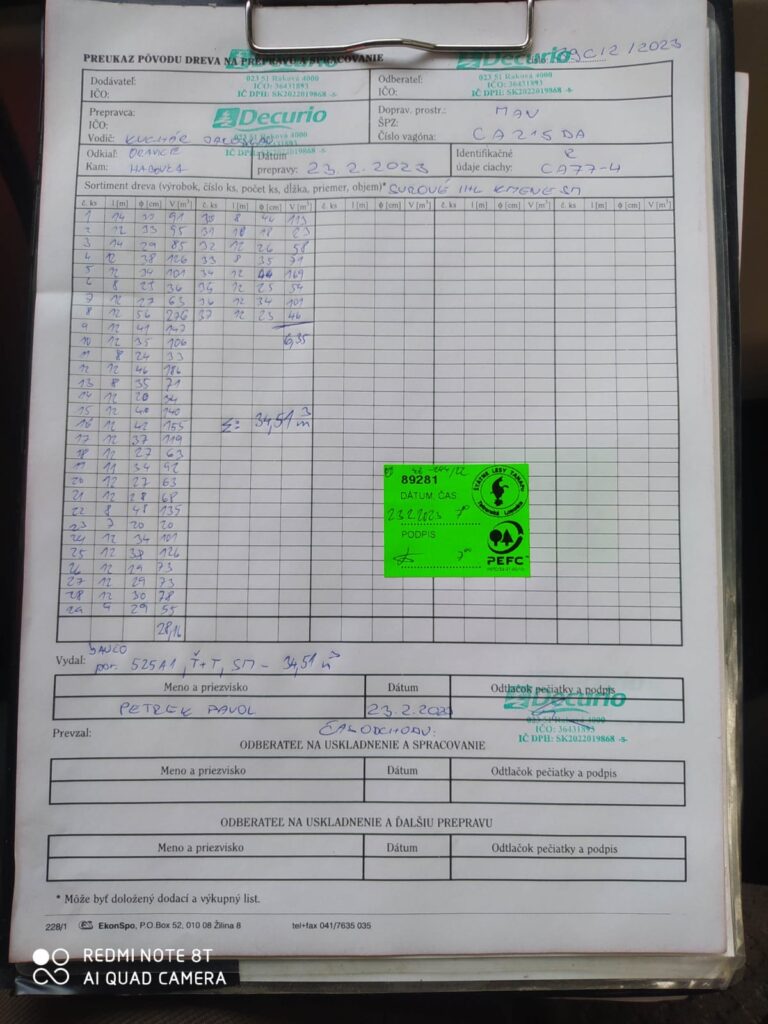 PREUKAZ PÔVODU DREVA NA PREPRAVU A SPRACOVANIE
Decurio
Dodávateľ:
IČO:
023 51 Raková 4000
IČO: 36431893
IČ DPH: SK2022019868 -8-
Decurio
Odberateľ:
IČO:
023 51 Raková 4000
IČO: 36431893
IČ DPH: SK2022019868 -8-
Prepravca:
IČO:
Decurio
Vodič: KUCHÁR
Doprav. prostr.: MAN
ŠPZ:
Číslo vagóna: CA215DA
Odkiaľ: ORAVICE
Kam:
Dátum
prepravy: 23.2.2023
Identifikačné
údaje ciachy: CA77-4
Sortiment dreva (výrobok, číslo ks, počet ks, dĺžka, priemer, objem)* SUROVÉ IHL KMENE SM
č. ks l [m] ϕ [cm] V [m³] č. ks l [m] ϕ [cm] V [m³] č. ks l [m] ϕ [cm] V [m³] č. ks l [m] ϕ [cm] V [m³] č. ks l [m] ϕ [cm] V [m³]
2 12 33 95
3 14 29 85 32 12 26 58
4 12 38 126 33 8 35 71
5 12 34 101 34 12 44 169
6 8 25 36 35 12 25 54
7 12 27 63 36 12 34 101
8 12 56 276 37 12 23 46
9 12 41 147
6,35
10 12 35 106
11 8 24 33
12 12 46 186
13 8 35 71
14 12 20 34
15 12 40 140
16 12 42 155
Σ: 34,51 m³
17 12 37 119
18 12 27 63
19 11 34 92
20 12 27 63
21 12 28 68
22 8 48 135
23 7 20 20
24 12 34 101
25 12 38 126
26 12 29 73
27 12 29 73
28 12 30 78
29 9 29 55
28,16
89281
DÁTUM, ČAS
23.2.2023
PODPIS
ŠTÁTNE LESY TANAPU
Tatranská Lomnica
PEFC
Vydal: por. 525A1, Ť+T, SM - 34,51 m³
Meno a priezvisko Dátum Odtlačok pečiatky a podpis
PETREK PAVOL 23.2.2023
Decurio
023 51 Raková 4000
IČO: 36431893
IČ DPH: SK2022019868 -8-
Prevzal:
ČAS ODCHODU:
ODBERATEĽ NA USKLADNENIE A SPRACOVANIE
Meno a priezvisko Dátum Odtlačok pečiatky a podpis
ODBERATEĽ NA USKLADNENIE A ĎALŠIU PREPRAVU
Meno a priezvisko Dátum Odtlačok pečiatky a podpis
* Môže byť doložený dodací a výkupný list.
228/1 EkonSpo, P.O.Box 52, 010 08 Žilina 8 tel+fax 041/7635 035
REDMI NOTE 8T
AI QUAD CAMERA